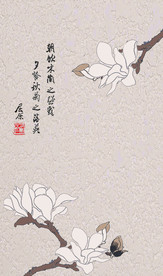 朝飲木蘭之墜露
夕餐秋菊之落英
屈原